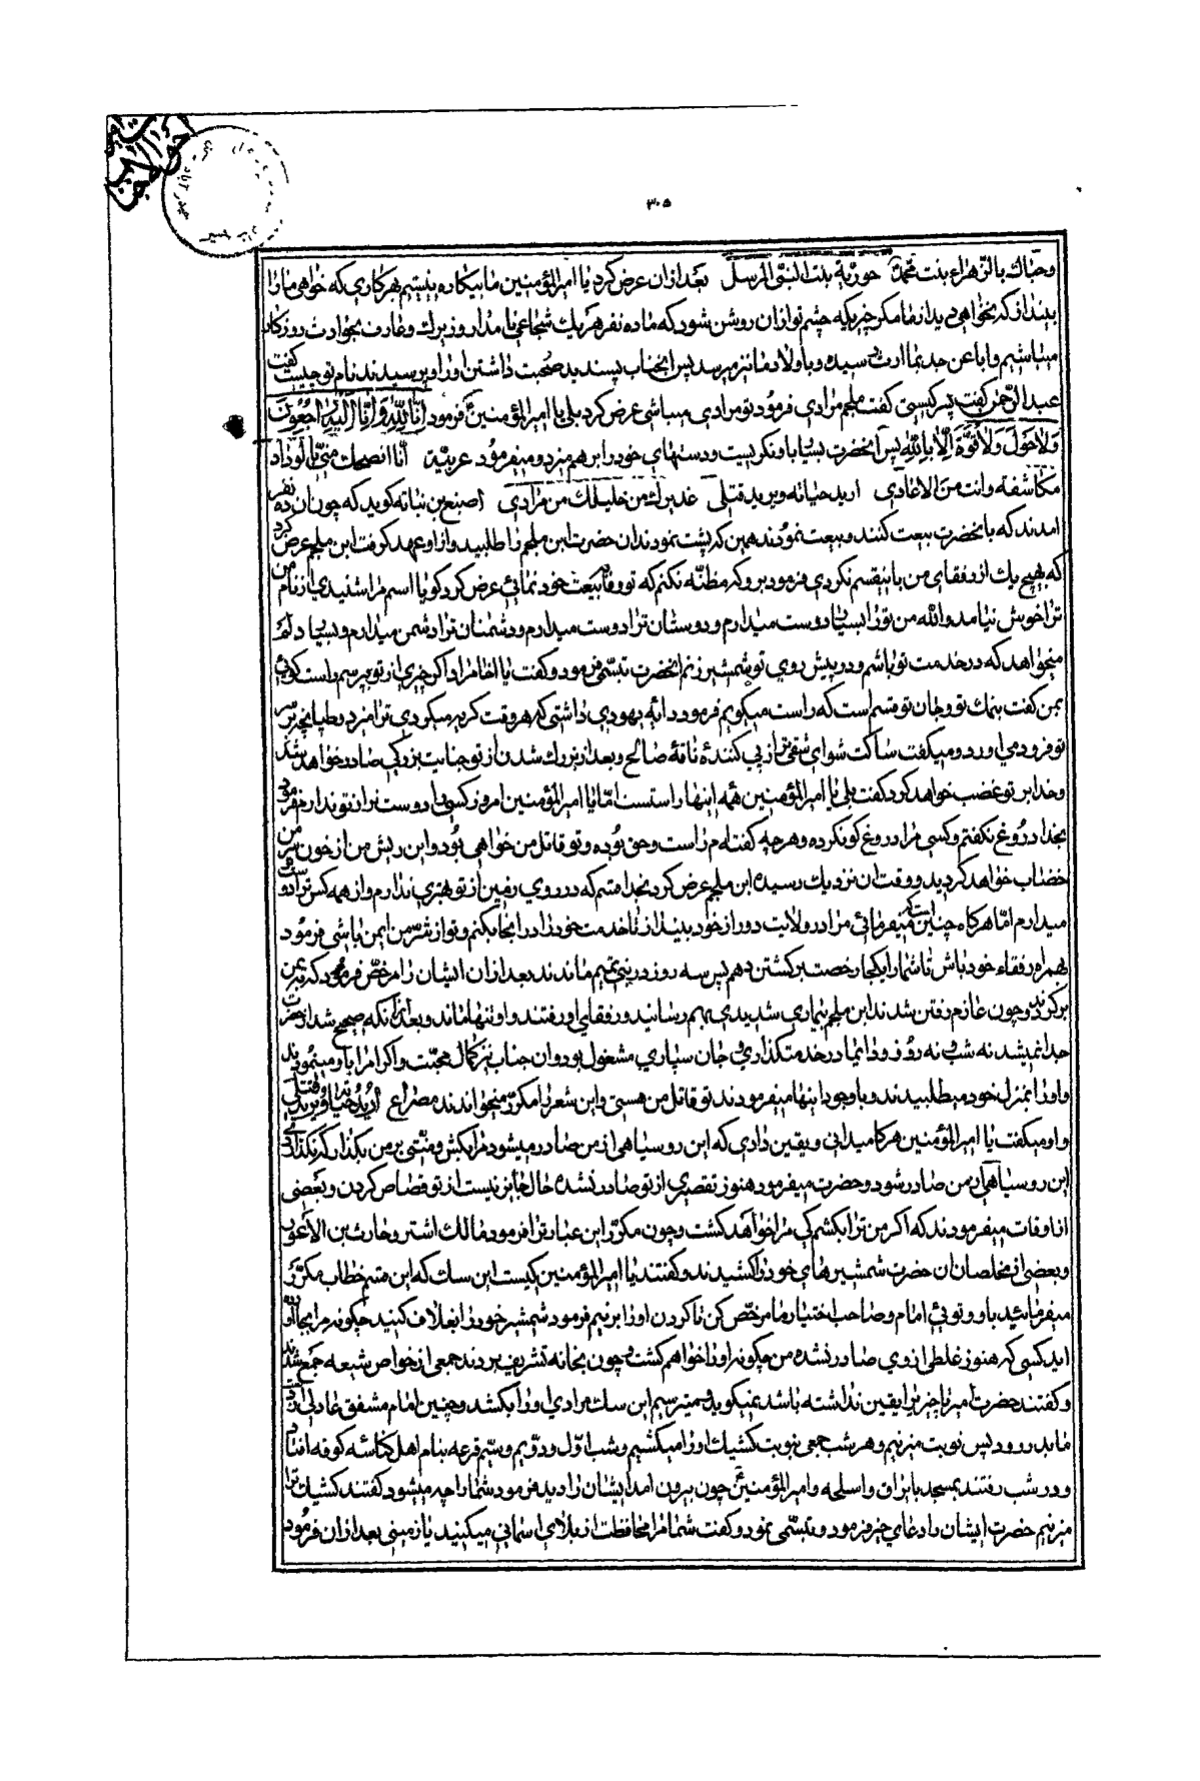 ۳۰۵
وحباك بالزهراء بنت محمد حورية بنت النبي المرسل بعد ازان عرض كرد يا امير المؤمنين ما بيكاره نيستيم بهر كاري كه خواهي ما را
بينداز كه نخواهي ديد از ما مكر چيزيكه چشم تو ازان روشن شود كه ما ده نفر هر يك شجاعي نامدار و زيرك وعارف بحوادث روزكار
ميباشيم واباعن جد بما ارث رسيده وباولاد ما نيز ميرسد پس انجناب پسنديد صحبت داشتن او را و پرسيدند نام تو چيست كفت
عبد الرحمن كفت پسر كيستي كفت ملجم مرادي فرمود تو مرادي ميباشي عرض كرد بلي يا امير المؤمنين فرمود انا لله وانا اليه راجعون
ولا حول ولا قوة الا بالله پس انحضرت بسيار باو نكريست ودستهاي خود را برهم ميزد وميفرمود عربية انا انصحك مني بالوداد
مكاشفة وانت من الاعادي اريد حياته ويريد قتلي عذيرك من خليلك من مرادي اصبغ بن نباته كويد كه چون ان ده نفر
امدند كه با نحضرت بيعت كنند وبيعت نمودند همين كه پشت نمودند ان حضرت ابن ملجم را طلبيد و از او عهد كرفت ابن ملجم عرض كرد
كه بهيچ يك از رفقاي من باينقسم نكردي فرمود برو كه مظنه نكنم كه تو وفا ببيعت خود نمائي عرض كرد كويا اسم مرا شنيدي از نام من
ترا خوش نيامد والله من تو را بسيار دوست ميدارم و دوستان ترا دوست ميدارم ودشمنان ترا دشمن ميدارم وبسيار دلم
ميخواهد كه در خدمت تو باشم و در پيش روي تو شمشير زنم انحضرت تبسمي فرمود و كفت يا اخا مراد اكر چيزي از تو بپرسم راست كوئي
بمن كفت بنمك تو وجان تو قسم است كه راست ميكويم فرمود دايه يهودي داشتي كه هر وقت كريه ميكردي ترا ميزد وطپانچه بر سر
تو فرود مي اورد و ميكفت ساكت شو اي شقي تر از پي كنندهٔ ناقهٔ صالح وبعد از بزرك شدن از تو جنايت بزركي صادر خواهد شد
وخدا بر تو غضب خواهد كرد كفت بلي يا امير المؤمنين همه اينها راستست اما يا امير المؤمنين امروز كسي را دوست تر از تو ندارم فرمود
بخدا دروغ نكفتم و كسي مرا دروغ كو نكرده وهر چه كفته ام راست وحق بوده وتو قاتل من خواهي بود و اين ريش من از خون سر من
خضاب خواهد كرديد و وقت ان نزديك رسيده ابن ملجم عرض كرد بخدا قسم كه در روي زمين از تو بهتري ندارم و از همه كس ترا دوست
ميدارم اما هر كاه چنين است كه ميفرمائي مرا در ولايت دور از خود بينداز تا خدمت خود را در انجا بكنم و تو از شر من ايمن باشي فرمود
بهمراه رفقاء خود باش تا شما را يكجا رخصت بركشتن دهم پس سه روز در بني تميم ماندند بعد ازان ايشان را مرخص فرمود كه بيمن
بركردند وچون عازم رفتن شدند ابن ملجم بيماري شديدي بهم رسانيد و رفقاي او رفتند و او تنها ماند وبعد ازانكه صحيح شد از حضرت
جدا نميشد نه شب و نه روز و دائما در خدمتكذاري وجان سپاري مشغول بود و ان جناب نيز كمال محبت واكرام را با و مينمودند
و او را بمنزل خود ميطلبيدند وبا وجود اينها ميفرمودند تو قاتل من هستي و اين شعر را مكرر ميخواندند مصراع اريد حياته ويريد قتلي
و او ميكفت يا امير المؤمنين هر كاه ميداني و يقين داري كه اين رو سياهي از من صادر ميشود مرا بكش و منتي بر من بكذار كه نكذاري
اين رو سياهي از من صادر شود وحضرت ميفرمود هنوز تقصيري از تو صادر نشده حال جايز نيست از تو قصاص كردن و بعضي
از اوقات ميفرمودند كه اكر من ترا بكشم كي مرا خواهد كشت وچون مكرر اين عبارت را فرمود مالك اشتر وحارث بن الاعور
وبعضي از مخلصان ان حضرت شمشيرهاي خود را كشيدند و كفتند يا امير المؤمنين كيست اين سك كه اين قسم خطاب مكرر
ميفرمائيد باو و توئي امام وصاحب اختيار ما مرخص كن تا كردن او را بزنيم فرمود شمشير خود را بغلاف كنيد چكونه مرا بجا
ايد كسي كه هنوز غلطي از وي صادر نشده من چكونه او را خواهم كشت وچون بخانه تشريف بردند جمعي از خواص شيعه جمع شدند
و كفتند حضرت امير تا چيزيرا يقين نداشته باشد نميكويد وميترسيم اين سك مرادي او را بكشد وچنين امام مشفق عادلي از دست
ما بدر رود پس نوبت ميزنيم وهر شب جمعي بنوبت كشيك او را ميكشيم وشب اول و دويم وسيم قرعه بنام اهل كناسه كوفه افتاد
و در شب رفتند بمسجد با يراق و اسلحه وامير المؤمنين چون بيرون امد ايشان را ديد فرمود شما را چه ميشود كفتند كشيك ترا
ميزنيم حضرت ايشان را دعاي خير فرمود وتبسمي نمود و كفت شما مرا محافظت از بلاي اسماني ميكنيد يا زميني بعد ازان فرمود